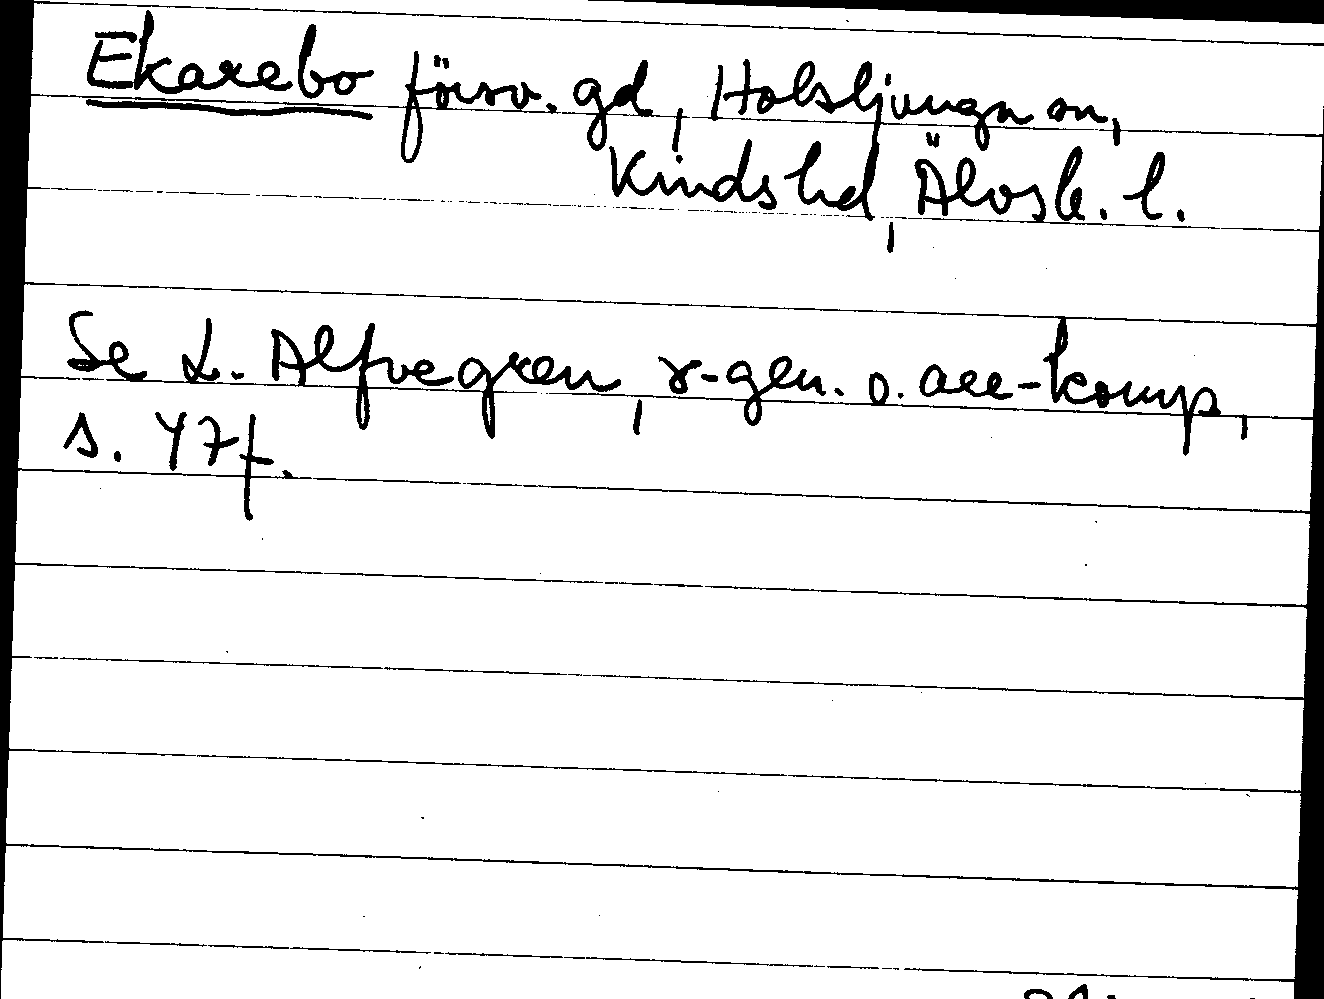 Ekarebo försv. gd, Holsljunga sn,
Kinds hd, Älvsb. l.
Se L. Alfvegren, r-gen. o. are-komp,
s. 47f.